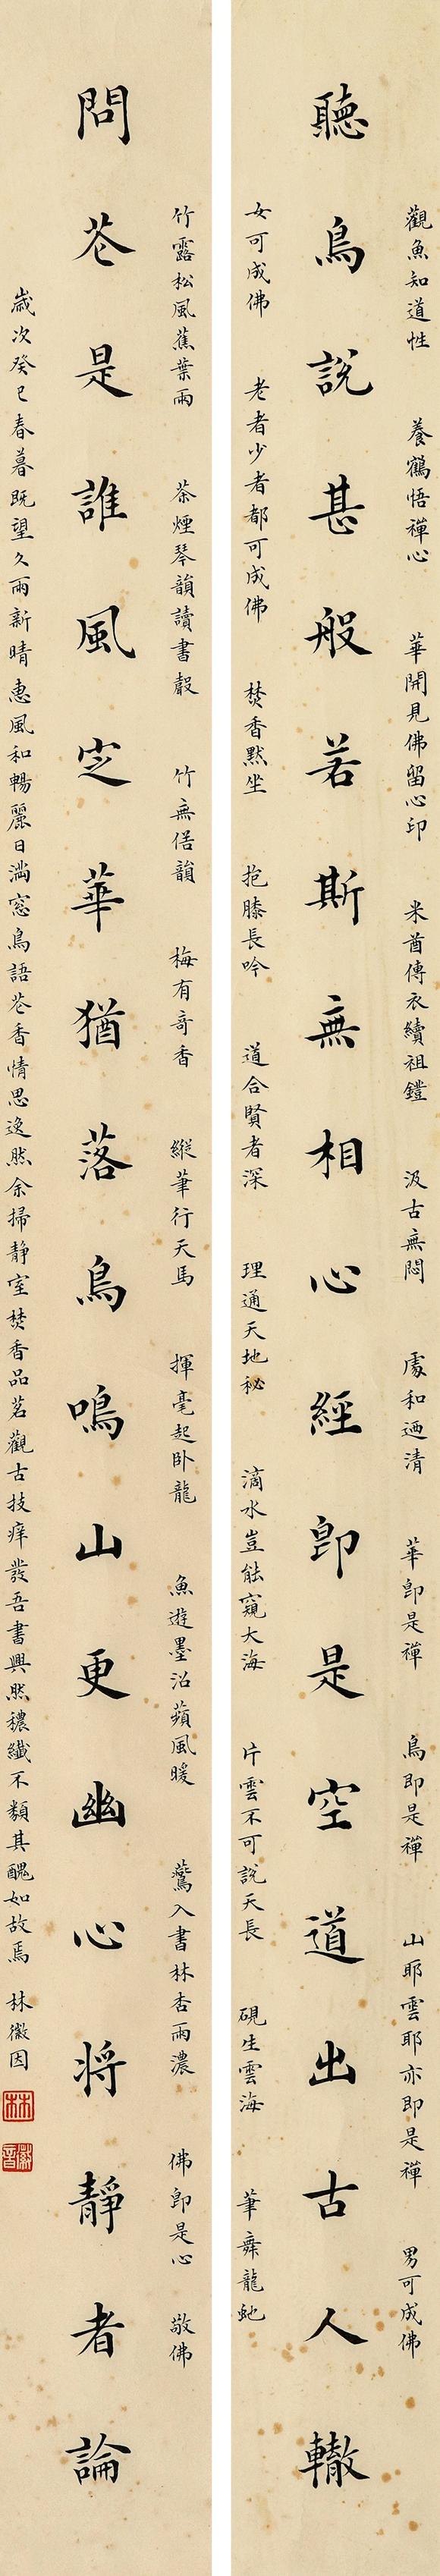 觀魚知道性 養鶴悟禪心 華開見佛留心印 米酋傳衣續祖鐙 汲古無悶 處和迺清 華即是禪 鳥即是禪 山耶雲耶亦即是禪 男可成佛
聽鳥說甚般若斯無相心經即是空道出古人轍
女可成佛 老者少者都可成佛 焚香默坐 抱膝長吟 道合賢者深 理通天地秘 滴水豈能窺大海 片雲不可說天長 硯生雲海 筆舞龍虵
竹露松風蕉葉雨 茶煙琴韻讀書聲 竹無俗韻 梅有奇香 縱筆行天馬 揮毫起卧龍 魚遊墨沼蘋風暖 鶯入書林杏雨濃 佛即是心 敬佛
問芲是誰風定華猶落鳥鳴山更幽心将靜者論
歲次癸巳春暮既望久雨新晴惠風和暢麗日滿窓鳥語芲香情思逸然余掃靜室焚香品茗觀古技痒發吾書興然穠纖不類其醜如故焉 林徽因
林
徽音